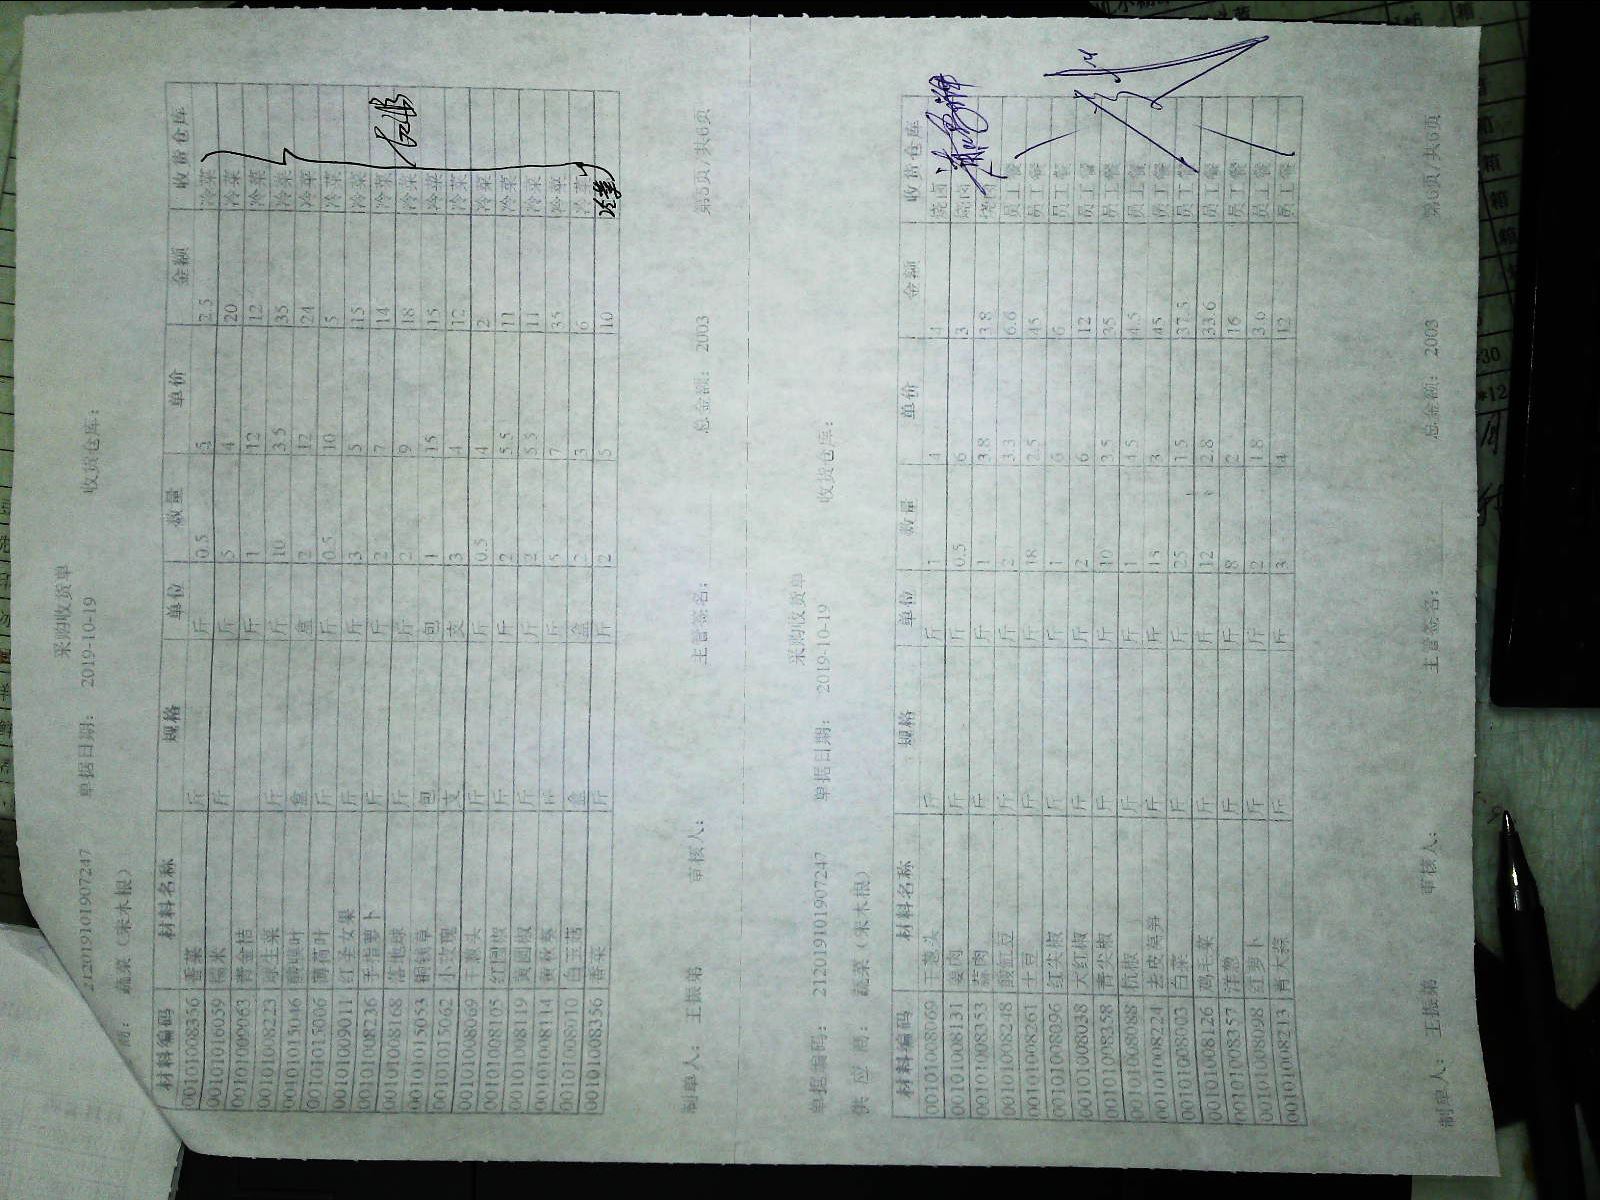 采购收货单
212019101907247 单据日期: 2019-10-19 收货仓库:
商: 蔬菜（宋木根）
材料编码 材料名称 规格 单位 数量 单价 金额 收货仓库
00101008356 香菜 斤 斤 0.5 5 2.5 冷菜
00101016059 糯米 斤 斤 5 4 20 冷菜
00101009063 青金桔 斤 1 12 12 冷菜
00101008223 球生菜 斤 斤 10 3.5 35 冷菜
00401015046 盒 盒 2 12 24 冷菜
00101015006 薄荷叶 斤 斤 0.5 10 5 冷菜
00101009011 红圣女果 斤 斤 3 5 15 冷菜
00101008236 手指萝卜 斤 斤 2 7 14 冷菜
00101008168 落地球 斤 斤 2 9 18 冷菜
00101015053 铜钱草 包 包 1 15 15 冷菜
00101015062 小玫瑰 支 支 3 4 12 冷菜
00101008069 干葱头 斤 斤 0.5 4 2 冷菜
00101008105 红圆椒 斤 斤 2 5.5 11 冷菜
00101008119 黄圆椒 斤 斤 2 5.5 11 冷菜
00101008114 斤 斤 5 7 35 冷菜
00101008010 白玉菇 盒 盒 2 3 6 冷菜
00101008356 香菜 斤 斤 2 5 10 冷菜
制单人: 王振弟 审核人: 主管签名: 总金额: 2003 第5页/共6页
采购收货单
单据编码: 212019101907247 单据日期: 2019-10-19 收货仓库:
供 应 商: 蔬菜（宋木根）
材料编码 材料名称 规格 单位 数量 单价 金额 收货仓库
00101008069 干葱头 斤 斤 1 4 4 烧卤
00101008131 姜肉 斤 斤 0.5 6 3 烧卤
00101008353 蒜肉 斤 斤 1 3.8 3.8 烧卤
00101008248 酸豇豆 斤 斤 2 3.3 6.6 员工餐
00101008261 土豆 斤 斤 18 2.5 45 员工餐
00101008096 红尖椒 斤 斤 1 6 6 员工餐
00101008038 大红椒 斤 斤 2 6 12 员工餐
00101008358 青尖椒 斤 斤 10 3.5 35 员工餐
00101008088 杭椒 斤 斤 1 4.5 4.5 员工餐
00101008224 去皮莴笋 斤 斤 15 3 45 员工餐
00101008003 白菜 斤 斤 25 1.5 37.5 员工餐
00101008126 鸡毛菜 斤 斤 12 2.8 33.6 员工餐
00101008357 洋葱 斤 斤 8 2 16 员工餐
00101008098 红萝卜 斤 斤 2 1.8 3.6 员工餐
00101008213 青大蒜 斤 斤 3 4 12 员工餐
制单人: 王振弟 审核人: 主管签名: 总金额: 2003 第6页/共6页